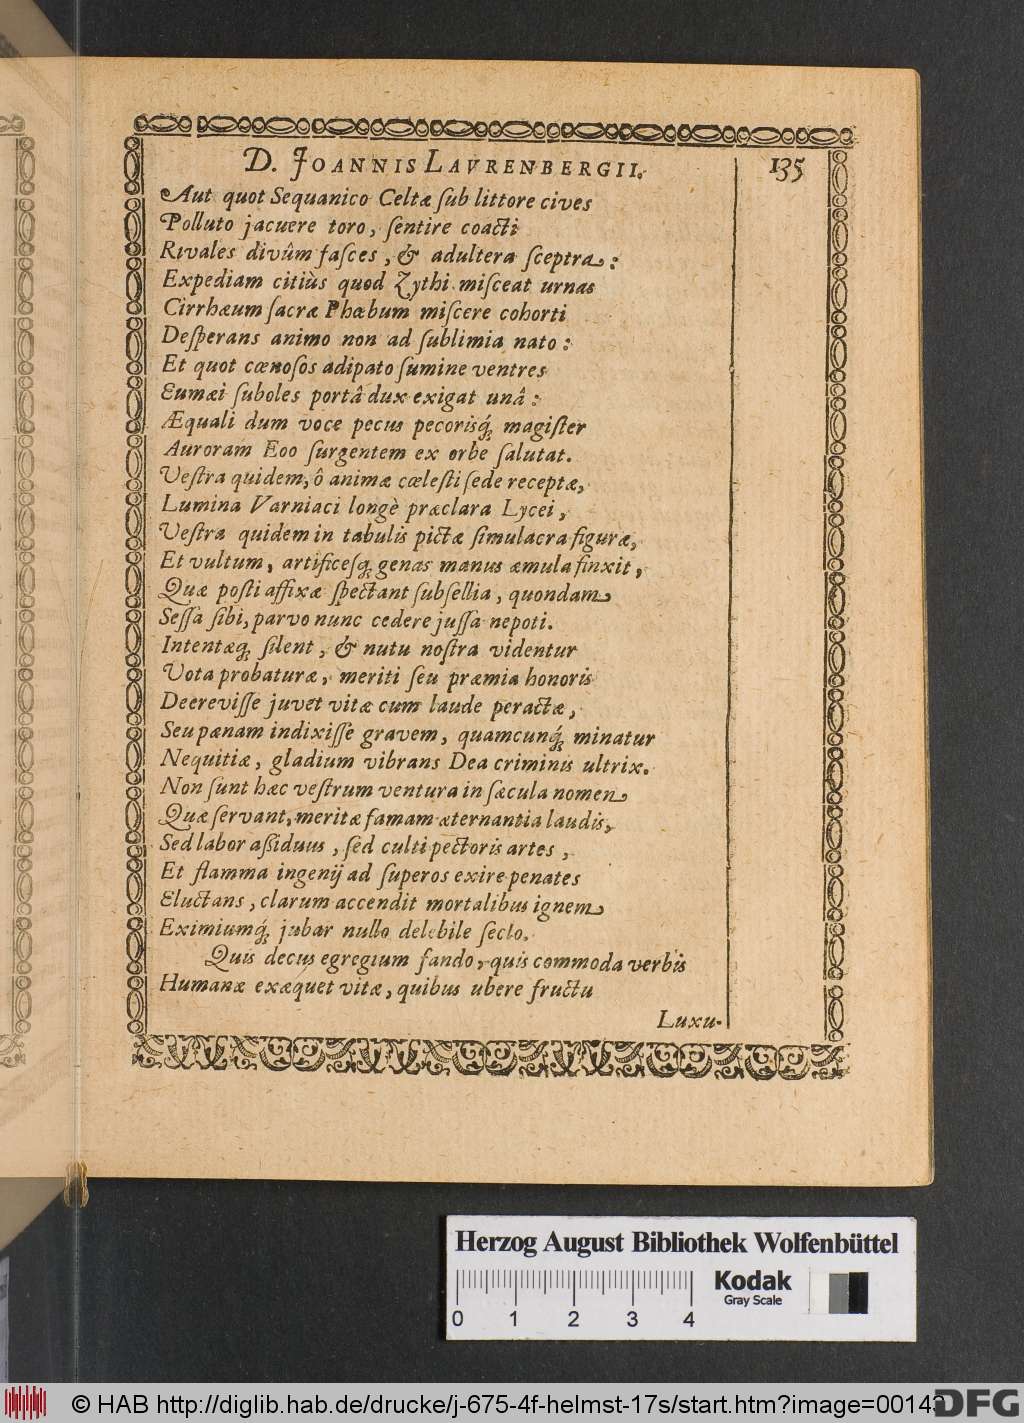 D. JOANNIS LAVRENBERGII. 135
Aut quot Sequanico Celtæ sub littore cives
Polluto jacuere toro, sentire coacti
Rivales divûm fasces, & adultera sceptra:
Expediam citiùs quod Zythi misceat urnas
Cirrhæum sacræ Phœbum miscere cohorti
Desperans animo non ad sublimia nato:
Et quot cœnosos adipato sumine ventres
Eumæi suboles portâ dux exigat unâ:
Æquali dum voce pecus pecorisq́; magister
Auroram Eoo surgentem ex orbe salutat.
Vestra quidem, ô animæ cœlesti sede receptæ,
Lumina Varniaci longè præclara Lycei,
Vestra quidem in tabulis pictæ simulacra figuræ,
Et vultum, artificesq; genas manus æmula finxit,
Quæ posti affixæ spectant subsellia, quondam
Sessa sibi, parvo nunc cedere jussa nepoti.
Intentæq; silent, & nutu nostra videntur
Vota probaturæ, meriti seu præmia honoris
Decrevisse juvet vitæ cum laude peractæ,
Seu pœnam indixisse gravem, quamcunq́; minatur
Nequitiæ, gladium vibrans Dea criminis ultrix.
Non sunt hæc vestrum ventura in sæcula nomen
Quæ servant, meritæ famam æternantia laudis,
Sed labor aßiduus, sed culti pectoris artes,
Et flamma ingenij ad superos exire penates
Eluctans, clarum accendit mortalibus ignem
Eximiumq́; jubar nullo delebile seclo.
Quis decus egregium fando, quis commoda verbis
Humanæ exæquet vitæ, quibus ubere fructu
Luxu-
Herzog August Bibliothek Wolfenbüttel
Kodak
Gray Scale
0 1 2 3 4
© HAB http://diglib.hab.de/drucke/j-675-4f-helmst-17s/start.htm?image=00143
DFG